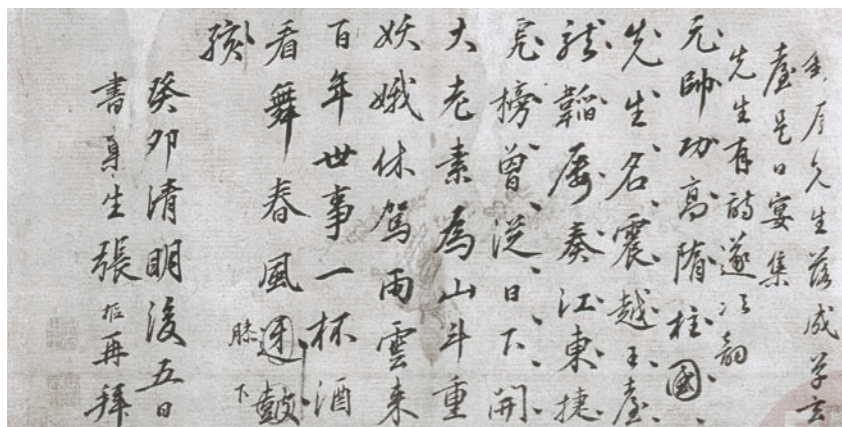 先生落成草玄
臺是日宴集
先生有詩遂次韻
元帥功高隋柱國
先生名震越王臺
龍韜屢奏江東捷
虎榜曾從日下開
大老素為山斗重
妖娥休駕雨雲来
百年世事一杯酒
看舞春風迓鼓
膝下
孩
癸卯清明後五日
書巢生張樞再拜